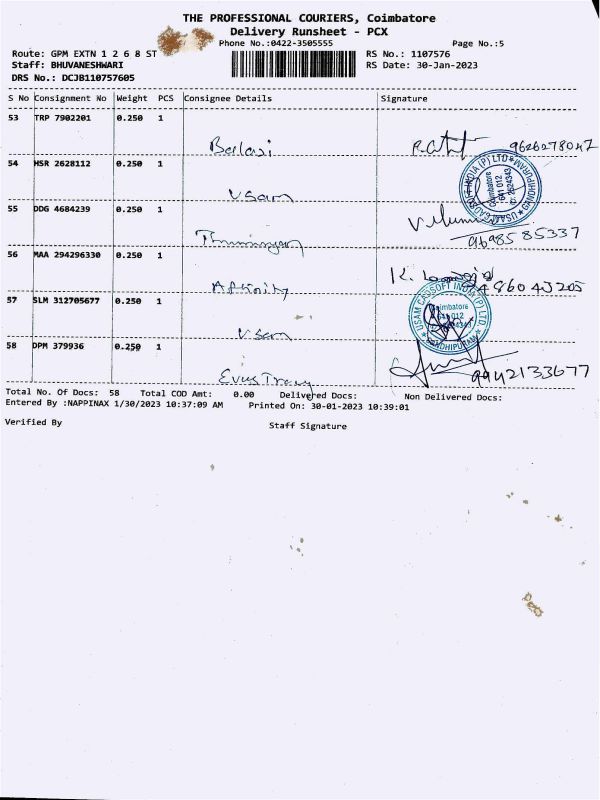 THE PROFESSIONAL COURIERS, Coimbatore
Delivery Runsheet - PCX
Phone No.:0422-3505555 Page No.:5
Route: GPM EXTN 1 2 6 8 ST RS No.: 1107576
Staff: BHUVANESHWARI RS Date: 30-Jan-2023
DRS No.: DCJB110757605
S No Consignment No Weight PCS Consignee Details Signature
53 TRP 7902201 0.250 1
Balaji 9626278047
54 HSR 2628112 0.250 1
Usam
USAM CADSOFT INDIA (P) LTD GANDHIPURAM
Coimbatore
641 012
55 DDG 4684239 0.250 1
9698585337
56 MAA 294296330 0.250 1
Affinity
57 SLM 312705677 0.250 1
Usam
USAM CADSOFT INDIA (P) LTD. GANDHIPURAM
Coimbatore
641 012
58 DPM 379936 0.250 1
9942133677
Total No. Of Docs: 58 Total COD Amt: 0.00 Delivered Docs: Non Delivered Docs:
Entered By :NAPPINAX 1/30/2023 10:37:09 AM Printed On: 30-01-2023 10:39:01
Verified By Staff Signature